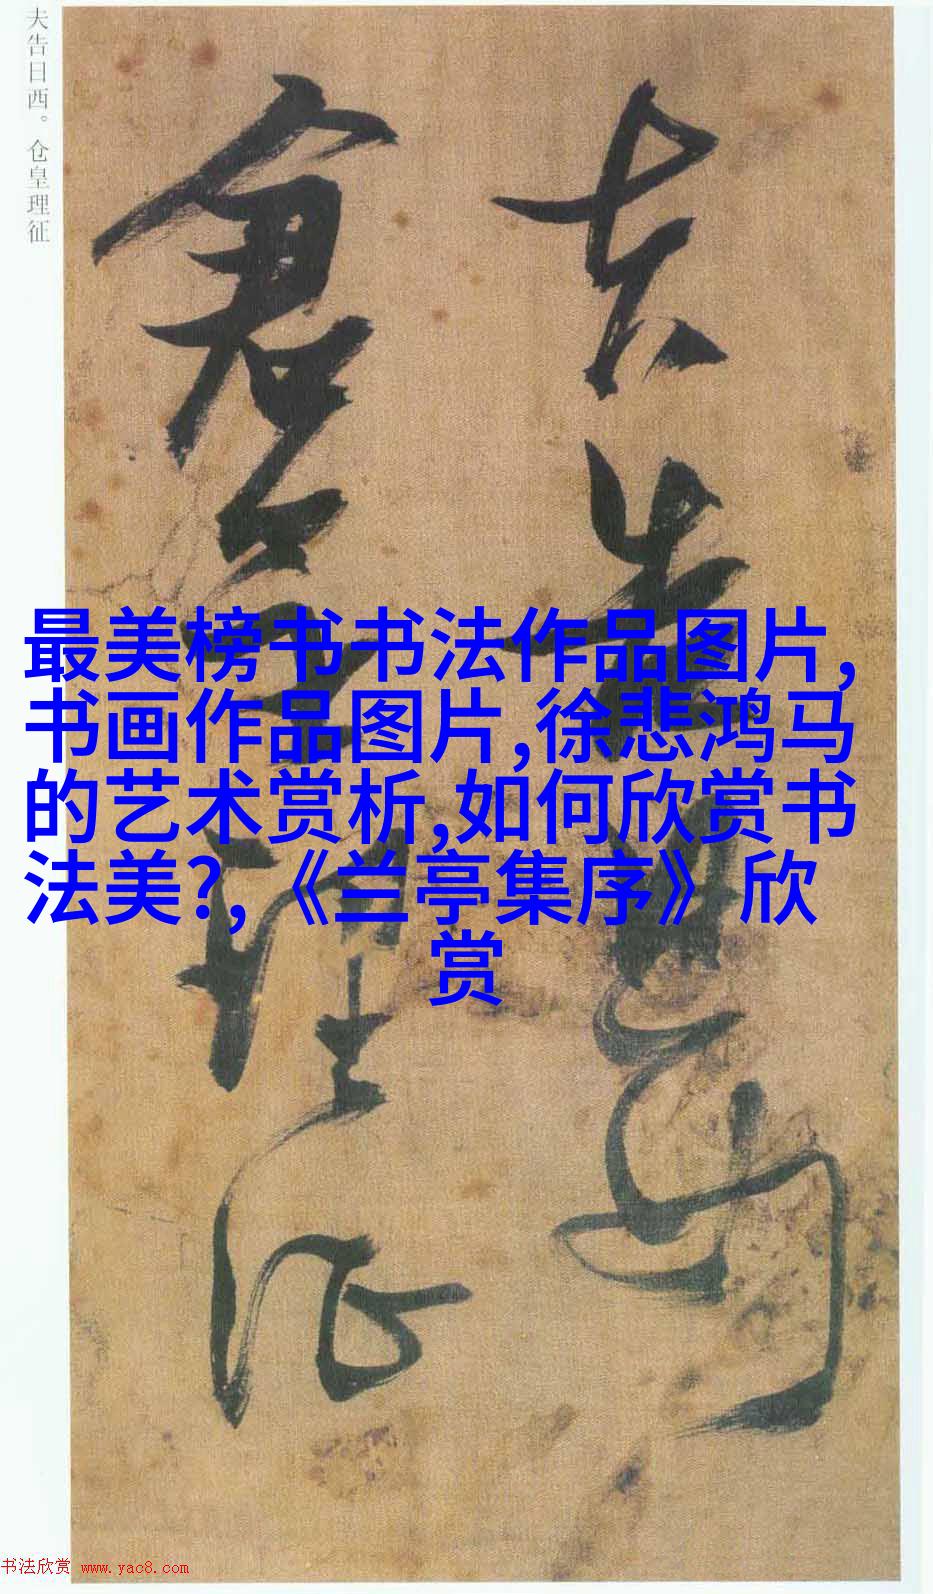 夫告日西。仓皇理征
夫告日西
倉皇理征
最美榜书书法作品图片,
书画作品图片,徐悲鸿马
的艺术赏析,如何欣赏书
法美?,《兰亭集序》欣
赏
书法欣赏 www.yac8.com